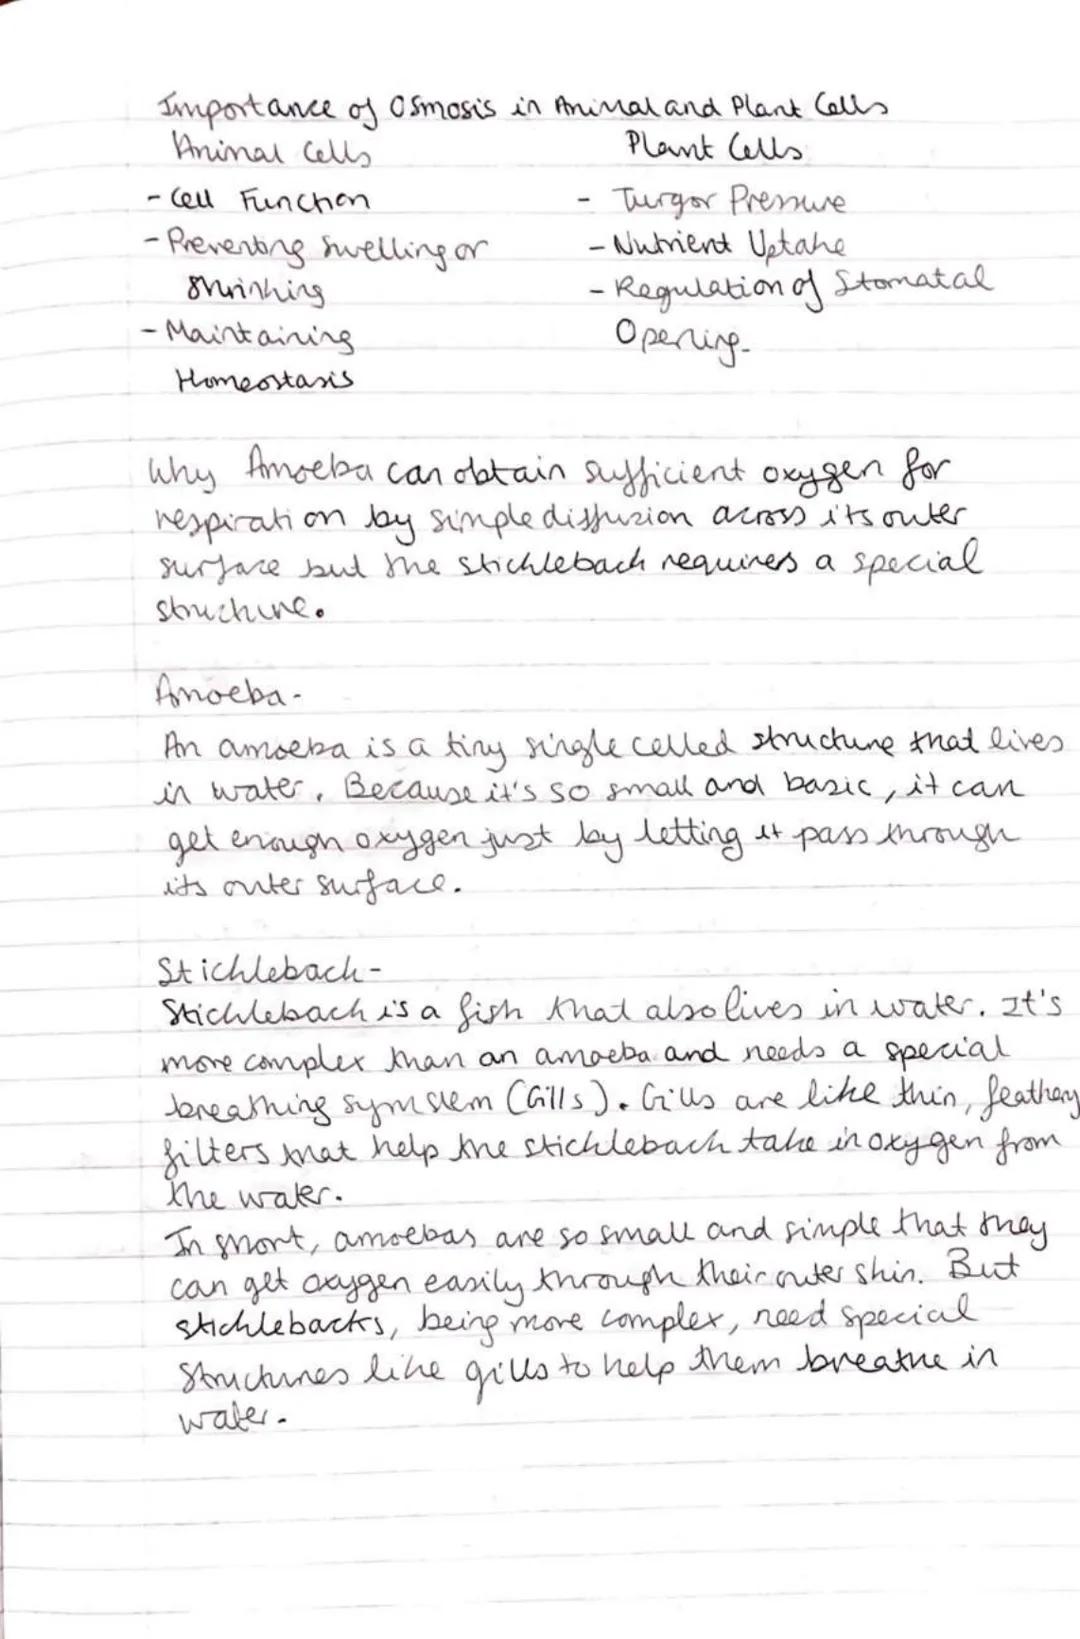 Importance of Osmosis in Animal and Plant Cells
Animal Cells Plant Cells
- Cell Function - Turgor Pressure
- Preventing Swelling or - Nutrient Uptake
Shrinking - Regulation of Stomatal
- Maintaining Opening.
Homeostasis
Why Amoeba can obtain sufficient oxygen for
respiration by simple diffusion across its outer
surface but the stickleback requires a special
structure.
Amoeba -
An amoeba is a tiny single celled structure that lives
in water. Because it's so small and basic, it can
get enough oxygen just by letting it pass through
its outer surface.
Stickleback -
Stickleback is a fish that also lives in water. It's
more complex than an amoeba and needs a special
breathing symstem (Gills). Gills are like thin, feathery
filters that help the stickleback take in oxygen from
the water.
In short, amoebas are so small and simple that they
can get oxygen easily through their outer skin. But
sticklebacks, being more complex, need special
structures like gills to help them breathe in
water.